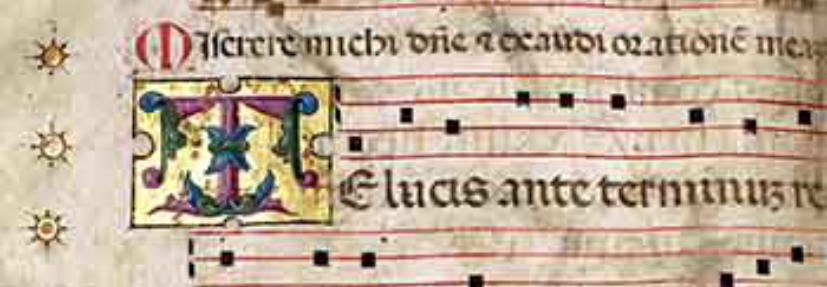 Miserere michi dñe ⁊ exaudi orationē mea
TE lucis ante terminuꝫ re